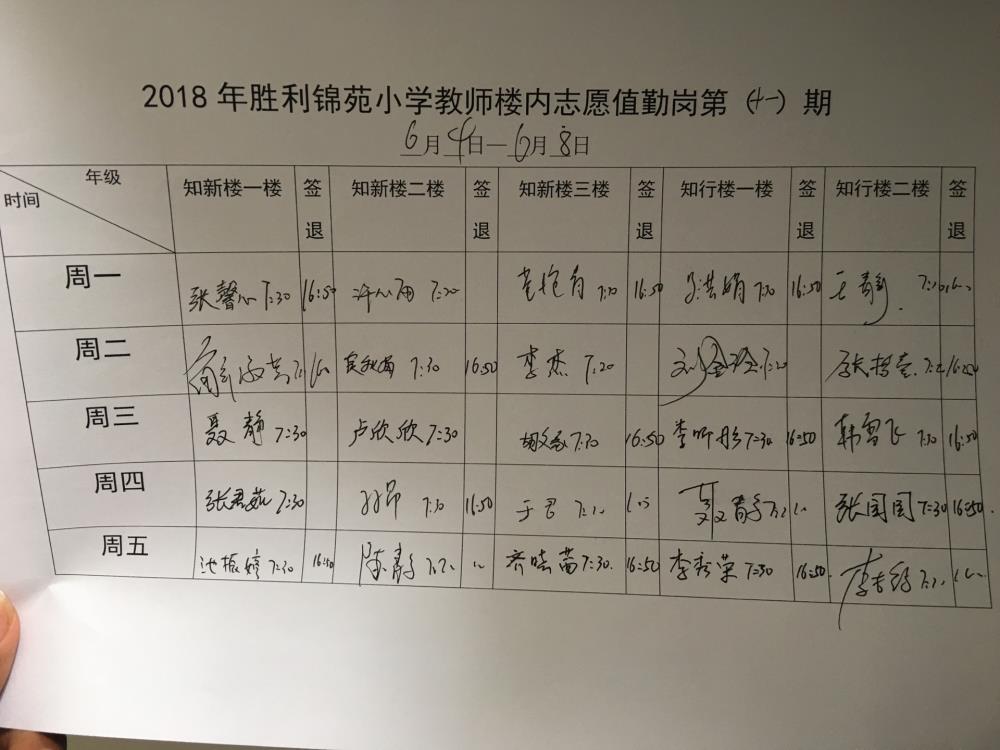 2018年胜利锦苑小学教师楼内志愿值勤岗第（十一）期
6月4日—6月8日
年级 时间 知新楼一楼 签退 知新楼二楼 签退 知新楼三楼 签退 知行楼一楼 签退 知行楼二楼 签退
周一 张馨心 7:30 16:50 7:30 16:50 16:50 王静
周二 7:30 16:50 李杰 7:20 7:20 16:50
周三 聂静 7:30 卢欣欣 7:30 7:30 16:50 李昕彤 7:30 16:50 韩雪飞 7:30 16:50
周四 张君茹 7:30 7:30 16:50 于君 聂静 张园园 7:30 16:50
周五 池振婷 7:30 16:50 陈静 齐晓蕾 7:30 16:50 李秀荣 7:30 16:50